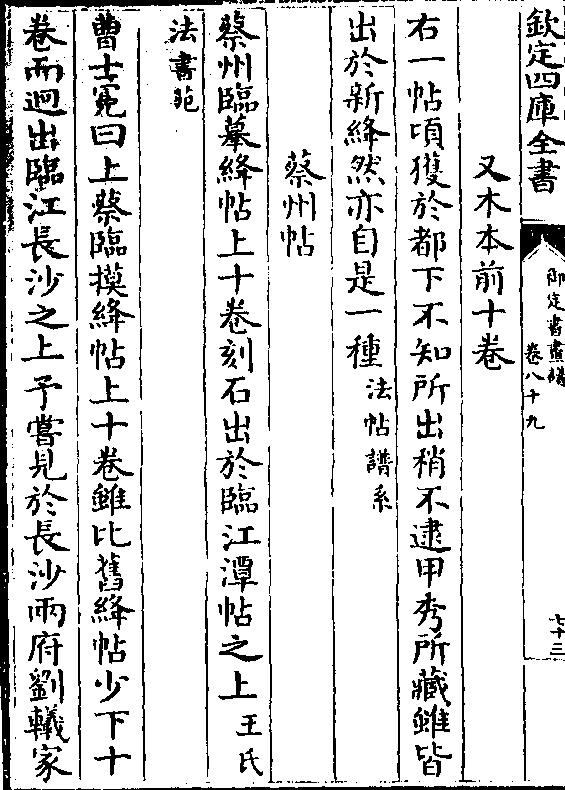 欽定四庫全書
御定書畫譜
卷八十九
七十三
又木本前十卷
右一帖頃獲於都下不知所出稍不逮甲秀所藏雖皆
出於新絳然亦自是一種法帖譜系
蔡州帖
蔡州臨摹絳帖上十卷刻石出於臨江潭帖之上王氏
法書苑
曹士冕曰上蔡臨摸絳帖上十卷雖比舊絳帖少下十
卷而迥出臨江長沙之上予嘗見於長沙兩府劉轙家